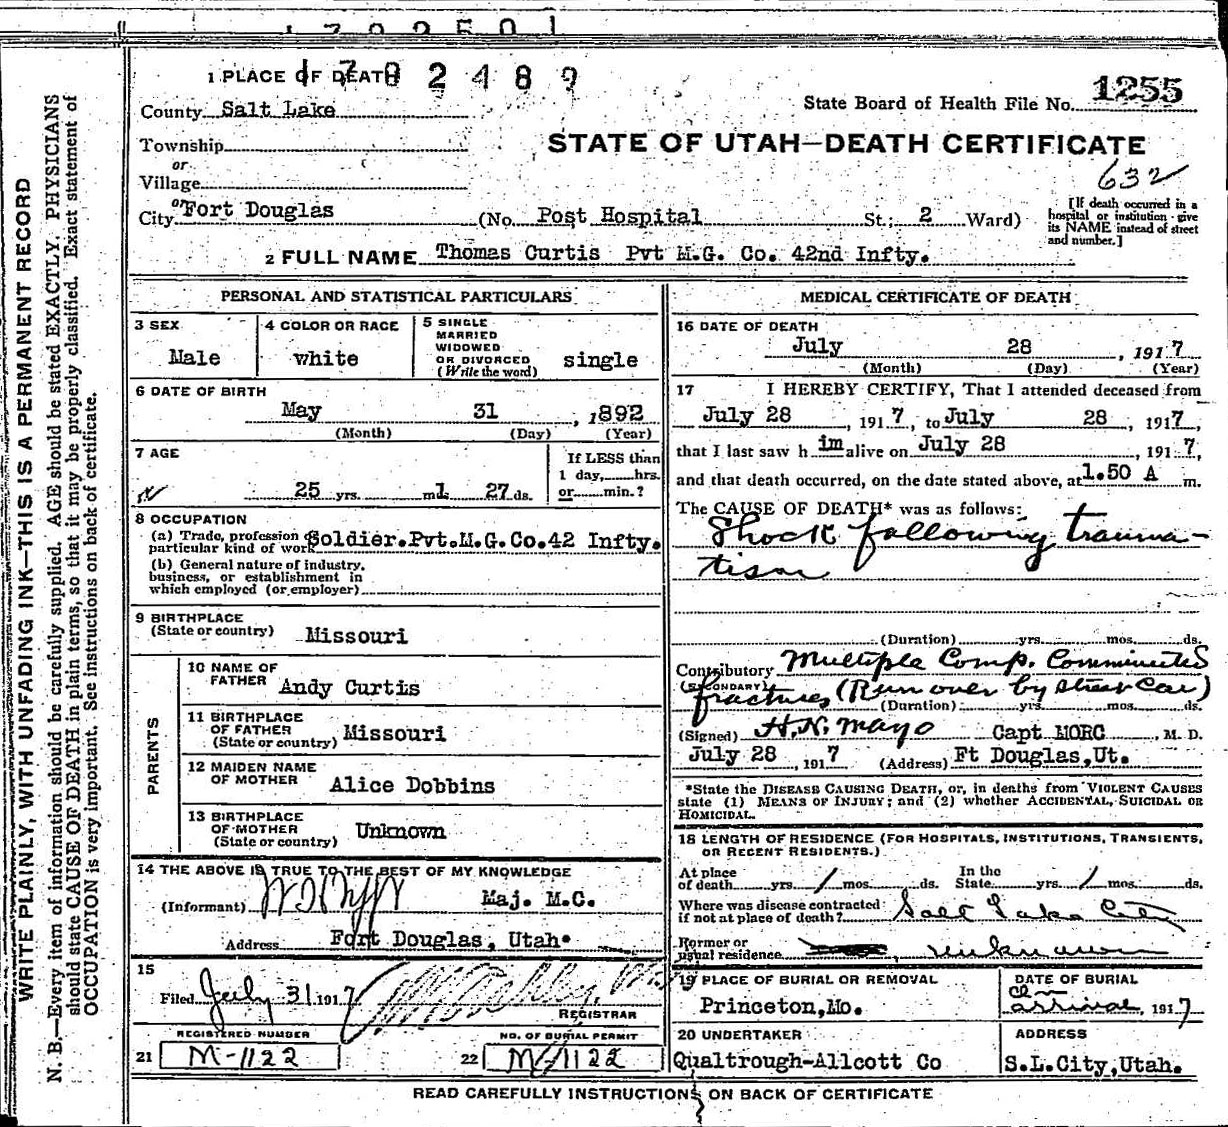 1702489
1 PLACE OF DEATH
County Salt Lake
State Board of Health File No. 1255
Township
STATE OF UTAH—DEATH CERTIFICATE
or
Village
632
or
City Fort Douglas (No. Post Hospital St.; 2 Ward)
[If death occurred in a hospital or institution give its NAME instead of street and number.]
2 FULL NAME Thomas Curtis Pvt M.G. Co. 42nd Infty.
PERSONAL AND STATISTICAL PARTICULARS
3 SEX
Male
4 COLOR OR RACE
white
5 SINGLE
MARRIED
WIDOWED
OR DIVORCED
(Write the word)
single
6 DATE OF BIRTH
May 31, 1892
(Month) (Day) (Year)
7 AGE
25 yrs. 1 m 27 ds.
If LESS than
1 day, hrs.
or min.?
8 OCCUPATION
(a) Trade, profession or
particular kind of work Soldier.Pvt.M.G.Co.42 Infty.
(b) General nature of industry,
business, or establishment in
which employed (or employer)
9 BIRTHPLACE
(State or country) Missouri
PARENTS
10 NAME OF
FATHER Andy Curtis
11 BIRTHPLACE
OF FATHER
(State or country) Missouri
12 MAIDEN NAME
OF MOTHER Alice Dobbins
13 BIRTHPLACE
OF MOTHER
(State or country) Unknown
14 THE ABOVE IS TRUE TO THE BEST OF MY KNOWLEDGE
(Informant) Maj. M.C.
Address Fort Douglas, Utah.
15
Filed July 31 1917
REGISTRAR
REGISTERED NUMBER
21 M-1122
NO. OF BURIAL PERMIT
22 M-1122
MEDICAL CERTIFICATE OF DEATH
16 DATE OF DEATH
July 28, 1917
(Month) (Day) (Year)
17 I HEREBY CERTIFY, That I attended deceased from
July 28, 1917, to July 28, 1917,
that I last saw him alive on July 28, 1917,
and that death occurred, on the date stated above, at 1.50 A m.
The CAUSE OF DEATH* was as follows:
Shock following trauma-
tism
(Duration) yrs. mos. ds.
Contributory Multiple Comp. Comminuted
(SECONDARY) fractures (Run over by street car)
(Duration) yrs. mos. ds.
(Signed) H.N. Mayo Capt MORC, M. D.
July 28, 1917 (Address) Ft Douglas, Ut.
*State the DISEASE CAUSING DEATH, or, in deaths from VIOLENT CAUSES
state (1) MEANS OF INJURY; and (2) whether ACCIDENTAL, SUICIDAL OR
HOMICIDAL.
18 LENGTH OF RESIDENCE (FOR HOSPITALS, INSTITUTIONS, TRANSIENTS,
OR RECENT RESIDENTS.)
At place
of death yrs. 1 mos. ds.
In the
State yrs. 1 mos. ds.
Where was disease contracted
if not at place of death? Salt Lake City
Former or
usual residence unknown
19 PLACE OF BURIAL OR REMOVAL
Princeton, Mo.
DATE OF BURIAL
On
arrival, 1917
20 UNDERTAKER
Qualtrough-Allcott Co
ADDRESS
S.L.City, Utah.
READ CAREFULLY INSTRUCTIONS ON BACK OF CERTIFICATE
WRITE PLAINLY, WITH UNFADING INK—THIS IS A PERMANENT RECORD
N. B.—Every item of information should be carefully supplied. AGE should be stated EXACTLY. PHYSICIANS
should state CAUSE OF DEATH in plain terms, so that it may be properly classified. Exact statement of
OCCUPATION is very important. See instructions on back of certificate.